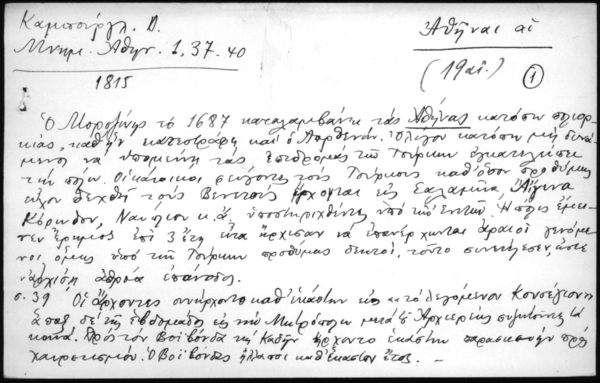 Καμπούργλ. Δ.
Μνημ. Αθην. 1, 37-40
1815
Ἀθῆναι αἱ
(19 αἰ.)
1
Ὁ Μοροζίνης τὸ 1687 καταλαμβάνει τὰς Ἀθήνας κατόπιν πολιορ-
κίας, καθ' ἣν κατεστράφη καὶ ὁ Παρθενών. Ὀλίγον κατόπιν μὴ δυνά-
μενος νὰ ὑπομείνῃ τὰς ἐπιδρομὰς τῶν Τούρκων ἐγκατέλειψε
τὴν πόλιν. Οἱ κάτοικοι φεύγοντες τοὺς Τούρκους καθ' ὅσον προθύμως
εἶχον δεχθῆ τοὺς Βενετοὺς ἔρχονται εἰς Σαλαμῖνα, Αἴγινα
Κόρινθον, Ναύπλιον κ.ἄ. ὑποστηριχθέντες ὑπὸ τῶν Ἐνετῶν. Ἡ πόλις ἔμει-
νεν ἔρημος ἐπὶ 3 ἔτη εἶτα ἤρχισαν νὰ ἐπανέρχωνται ἀραιοὶ γενόμε-
νοι ὅμως ὑπὸ τῶν Τούρκων προθύμως δεκτοί, τοῦτο συνετέλεσεν, ὥστε
ν' ἀρχίσῃ ἀθρόα ἐπάνοδος.
σ. 39 Οἱ ἄρχοντες συνήρχοντο καθ' ἑκάστην εἰς τὸ λεγόμενον Κονσέγιον
ἅπαξ δὲ τῆς ἑβδομάδος εἰς τὴν Μητρόπολιν μετὰ τοῦ Ἀρχιερέως συζητοῦντες τὰ
κοινά. Πρὸς τὸν Βοϊβόνδα τὸν Καδὴν ἤρχοντο ἑκάστην παρασκευὴν πρὸς
χαιρετισμόν. Ὁ Βοϊβόνδας ἤλλασσε καθ' ἕκαστον ἔτος. –